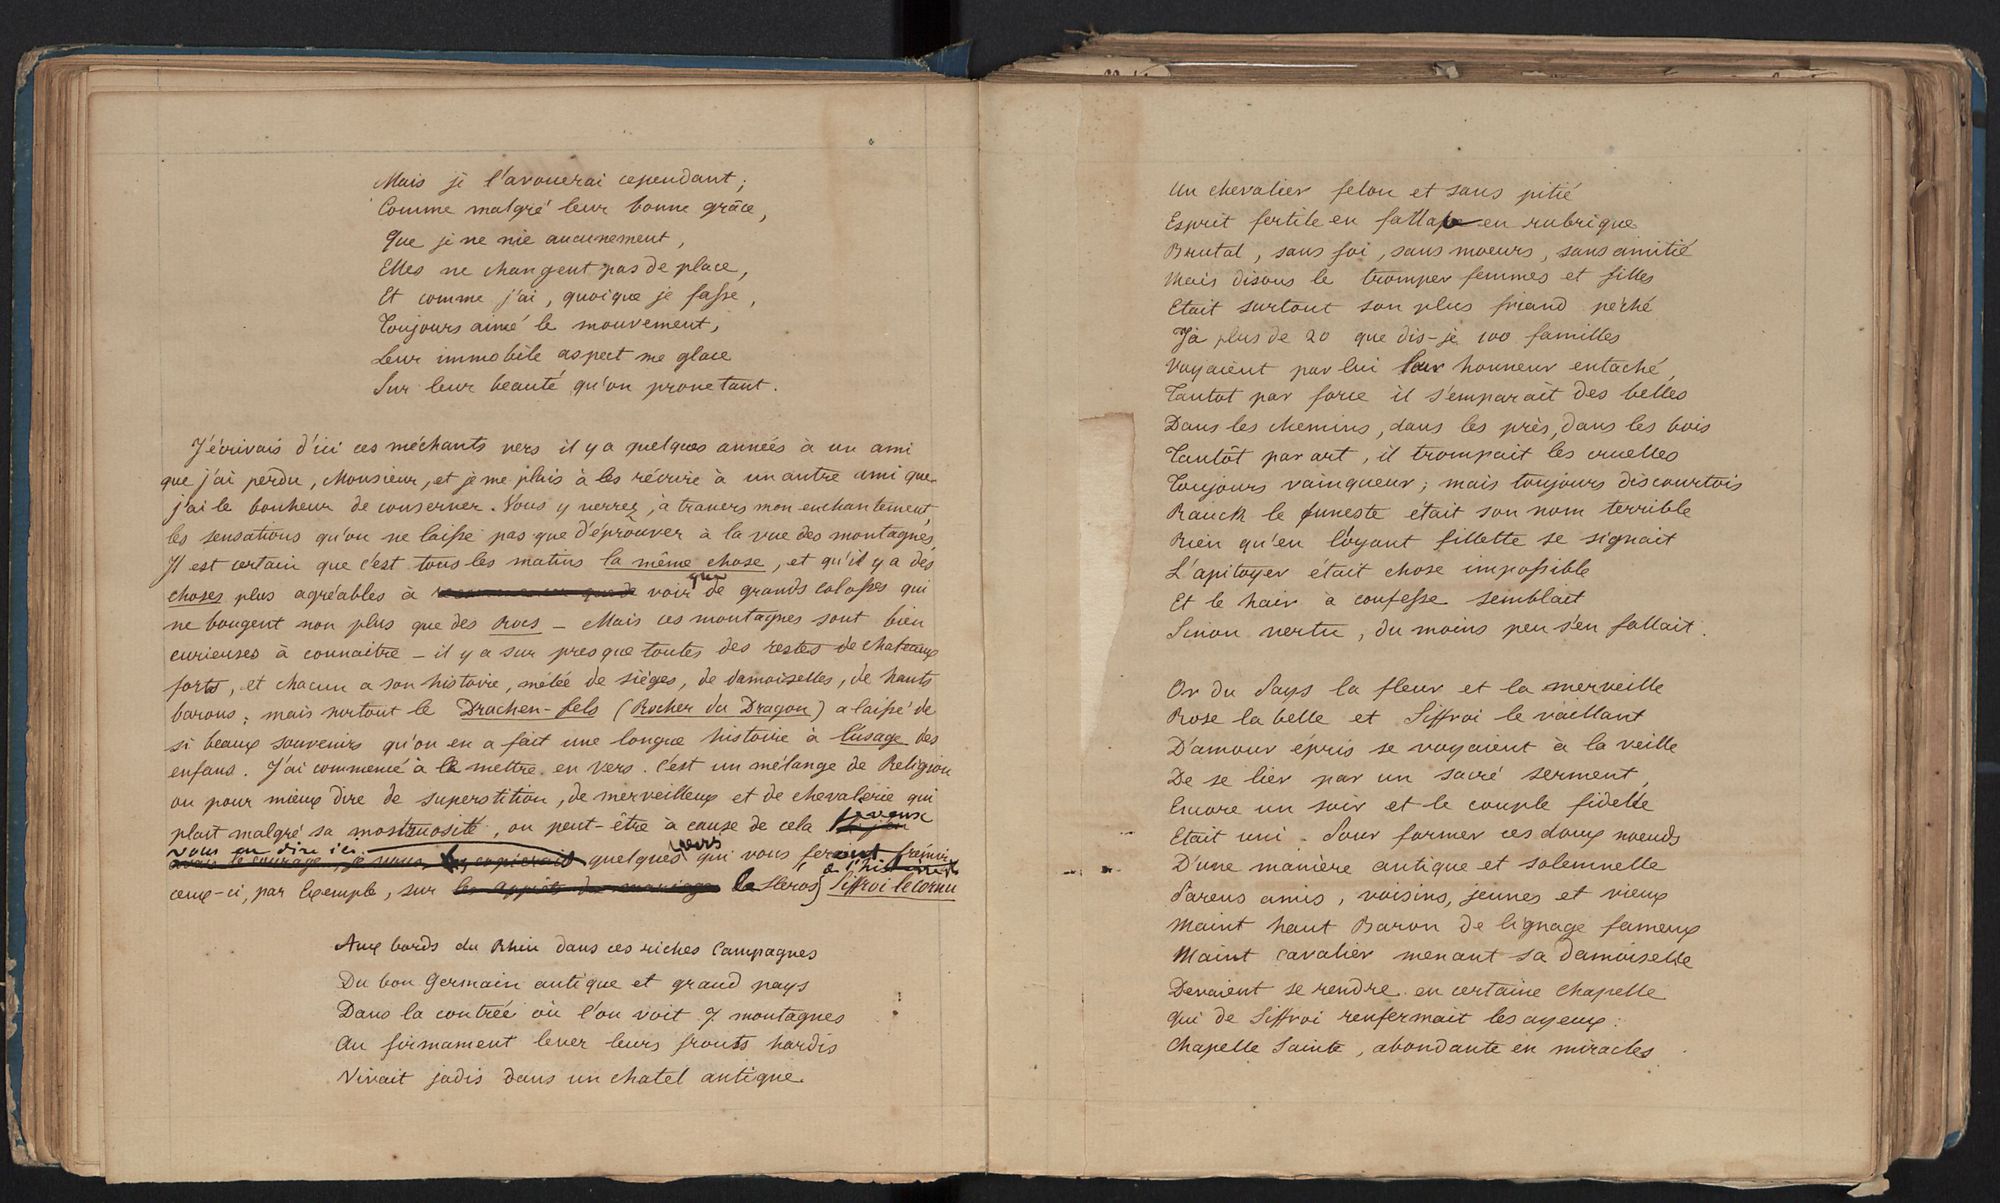 Mais je l'avouerai cependant;
Comme malgré leur bonne grâce,
Que je ne nie aucunement,
Elles ne changent pas de place,
Et comme j'ai, quoique je fasse,
Toujours aimé le mouvement,
Leur immobile aspect me glace
Sur leur beauté qu'on prone tant.
J'écrivais d'ici ces méchants vers il y a quelques années à un ami
que j'ai perdu, Monsieur, et je me plais à les récrire à un autre ami que
j'ai le bonheur de conserver. Vous y verrez, à travers mon enchantement,
les sensations qu'on ne laisse pas que d'éprouver à la vue des montagnes,
Il est certain que c'est tous les matins la même chose, et qu'il y a des
choses plus agréables à voir que de grands colosses qui
ne bougent non plus que des Rocs — Mais ces montagnes sont bien
curieuses à connaitre — il y a sur presque toutes des restes de chateaux
forts, et chacun a son histoire, mêlée de sièges, de damoiselles, de hauts
barons; mais surtout le Drachen-fels (Rocher du Dragon) a laissé de
si beaux souvenirs qu'on en a fait une longue histoire à l'usage des
enfans. J'ai commencé à la mettre en vers. C'est un mélange de Religion
ou pour mieux dire de superstition, de merveilleux et de chevalerie qui
plait malgré sa mostruosité, ou peut-être à cause de cela je veux
vous en dire ici
avais le courage, je vous en copierais quelques vers qui vous feront frémir
ceux-ci, par Exemple, sur les apprêts du mariage le Heros de l'histoire Siffroi le cornu
Aux bords du Rhin dans ces riches Campagnes
Du bon Germain antique et grand pays
Dans la contrée où l'on voit 7 montagnes
Au firmament lever leurs fronts hardis
Vivait jadis dans un chatel antique
Un chevalier felon et sans pitié
Esprit fertile en fallace en rubrique
Brutal, sans foi, sans moeurs, sans amitié
Mais disons le tromper femmes et filles
Etait surtout son plus friand péché
Jà plus de 20 que dis-je 100 familles
Voyaient par lui leur honneur entaché,
Tantot par force il s'emparait des belles
Dans les chemins, dans les près, dans les bois
Tantôt par art, il trompait les cruelles
Toujours vainqueur; mais toujours discourtois
Rauck le funeste était son nom terrible
Rien qu'en l'oyant fillette se signait
L'apitoyer était chose impossible
Et le hair à confesse semblait
Sinon vertu, du moins peu s'en fallait.
Or du Pays la fleur et la merveille
Rose la belle et Siffroi le vaillant
D'amour épris se voyaient à la veille
De se lier par un sacré serment,
Encore un soir et le couple fidelle
Etait uni. Pour former ces doux noeuds
D'une manière antique et solemnelle
Parens amis, voisins, jeunes et vieux
Maint haut Baron de lignage fameux
Maint cavalier menant sa damoiselle
Devaient se rendre en certaine chapelle
Qui de Siffroi renfermait les ayeux:
Chapelle Sainte, abondante en miracles